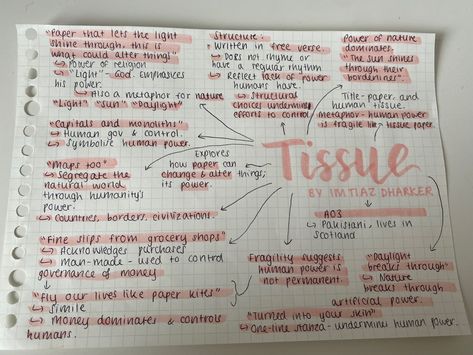 "Paper that lets the light
shine through, this is
what could alter things"
↳ Power of religion
↳ "Light" - God. Emphasizes
his power.
↳ Also a metaphor for nature
"Light" "Sun" "Daylight"
Structure:
Written in free verse.
↳ Does not rhyme or
have a regular rhythm
↳ Reflect lack of power
humans have.
↳ Structural
choices undermine
efforts to control
Power of nature
dominates.
"The sun shines
through their
borderlines".
Title - paper, and
human tissue.
metaphor - human power
is fragile like tissue paper
"Capitals and monoliths"
↳ Human gov & control.
↳ Symbolise human power.
Explores
how paper can
change & alter things,
its power.
Tissue
BY IMTIAZ DHARKER
"Maps too"
↳ Segregate the
natural world
through humanity's
power.
↳ Countries, borders, civilizations.
AO3
↳ Pakistani, lives in
Scotland
"Fine slips from grocery shops"
↳ Acknowledges purchases
↳ Man-made - used to control
governance of money
Fragility suggests
human power is
not permanent.
"Daylight
breaks through"
↳ Nature
breaks through
artificial power.
"Fly our lives like paper kites"
↳ Simile
↳ Money dominates & controls
humans.
"Turned into your skin"
↳ One-line stanza - undermine human power.